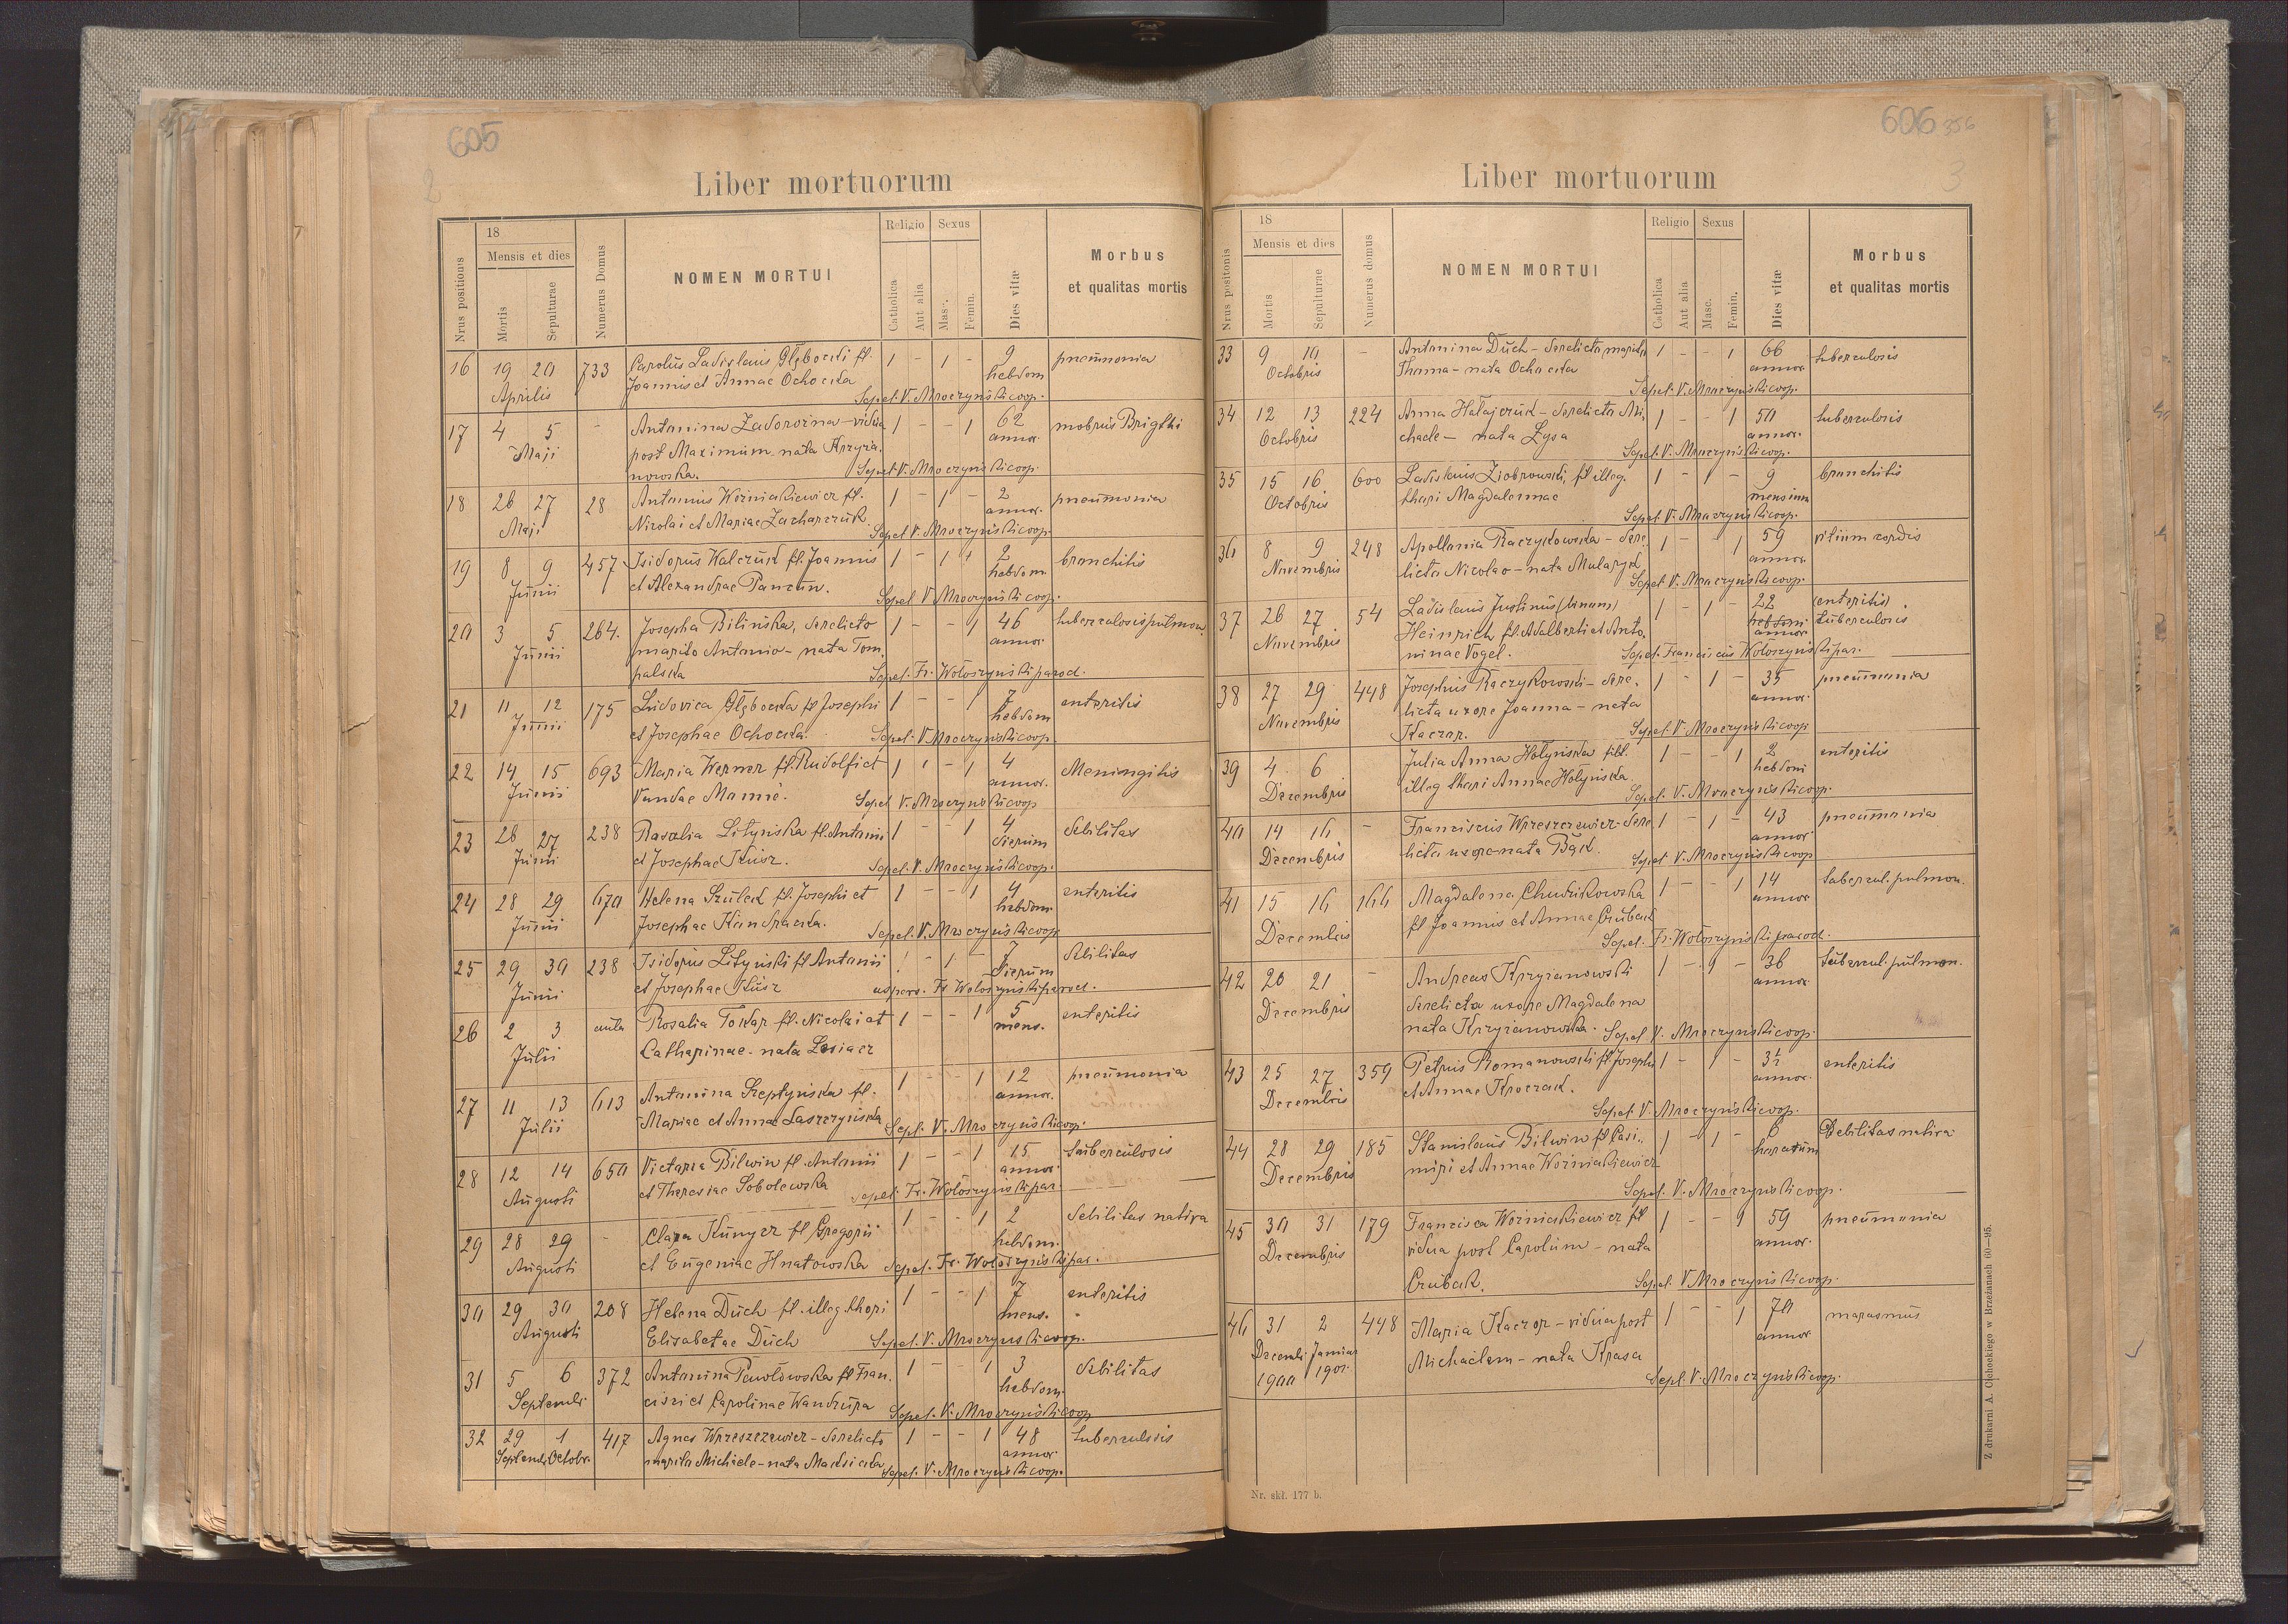 605
2
Liber mortuorum
Nrus positionis
18
Mensis et dies
Mortis
Sepulturae
Numerus Domus
NOMEN MORTUI
Religio
Catholica
Aut alia
Sexus
Masc.
Femin.
Dies vitæ
Morbus
et qualitas mortis
16 19 20 733 Carolus Ladislaus Głębocki fl. 1 - 1 - 9 pneumonia
Aprilis Joannis et Annae Ochocka hebdom
Sepel. V. Mroczyński coop.
17 4 5 - Antonina Zadorożna - vidua 1 - - 1 62 mobrus Brigthi
Maji post Maximum - nata Krzyża- annor.
nowska. Sepel. V. Mroczyński coop.
18 26 27 28 Antonius Woźniakiewicz fl. 1 - 1 - 2 pneumonia
Maji Nicolai et Mariae Zacharczuk annor.
Sepel V. Mroczyński coop.
19 8 9 457 Isidorus Walczuk fl. Joannis 1 - 1 1 2 bronchitis
Junii et Alexandrae hebdom.
Sepel V. Mroczyński coop.
20 3 5 264. Josepha Bilińska, derelicto 1 - - 1 46 tuberculosis pulmon.
Junii marito Antonio - nata Tom annor.
palska Sepel. Fr. Wołoszyński paroch.
21 11 12 175 Ludovica Głębocka fl Josephi 1 - - 1 7 enteritis
Junii et Josephae Ochocka. hebdom
Sepel. V. Mroczyński coop.
22 14 15 693 Maria Werner fl. Rudolfi et 1 1 - 1 4 Meningitis
Junii Vandae annor.
Sepel V. Mroczyński coop
23 26 27 238 Rosalia Lityńska fl. Antonii 1 - - 1 4 debilitas
Junii et Josephae Kusz. dierum
Sepel. V. Mroczyński coop.
24 28 29 670 Helena Szulek fl. Josephi et 1 - - 1 4 enteritis
Junii Josephae Kondracka. hebdom.
Sepel. V. Mroczyński coop
25 29 30 238 Isidorus Lityński fl Antonii 1 - 1 - 7 debilitas
Junii et Josephae Kusz dierum
aspers. Fr Wołoszyński paroch.
26 2 3 aula Rosalia Tokar fl. Nicolai et 1 - - 1 5 enteritis
Julii Catharinae - nata Lesiacz mens.
27 11 13 613 Antonina Szeptyńska fl. 1 - - 1 12 pneumonia
Julii Mariae et Annae Laszczyńska annor.
Sepl. V. Mroczyński coop.
28 12 14 650 Victoria Bilwin fl. Antonii 1 - - 1 15 tuberculosis
Augusti et Theresiae Sobolewska annor.
sepel. Fr. Wołoszyński par.
29 28 29 - Clara Kunycz fl Gregorii 1 - - 1 2 debilitas nativa
Augusti et Eugeniae Hnatowska hebdom.
Sepel. Fr. Wołoszyński par.
30 29 30 208 Helena Duch fl. illeg thori 1 - - 1 7 enteritis
Augusti Elisabetae Duch mens.
Sepel. V. Mroczyński coop.
31 5 6 372 Antonina Pawołowska fl Fran. 1 - - 1 3 debilitas
Septemb. cisci et Carolinae Wandzura hebdom.
Sepel. V. Mroczyński coop
32 29 1 417 Agnes Wrzeszczewicz - derelicto 1 - - 1 48 tuberculosis
Septemb. Octobr. marito Michaele - nata annor
Sepel. V. Mroczyński coop.
606 356
3
Liber mortuorum
Nrus positonis
18
Mensis et dies
Mortis
Sepulturae
Numerus domus
NOMEN MORTUI
Religio
Catholica
Aut alia
Sexus
Masc.
Femin.
Dies vitæ
Morbus
et qualitas mortis
33 9 10 - Antonina Duch - derelicta marito 1 - - 1 66 tuberculosis
Octobris Thoma - nata Ochocka annor.
Sepel. V. Mroczyński coop.
34 12 13 224 Anna Hałajczuk - derelicta Mi, 1 - - 1 50 tuberculosis
Octobris chaele - nata Łysa annor.
Sepel. V. Mroczyński coop.
35 15 16 600 Ladislaus Ziobrowski, fl illeg. 1 - 1 - 9 bronchitis
Octobris thori Magdalennae mensium
Sepel. V. Mroczyński coop.
36 8 9 248 Apollonia Raczykowska - dere, 1 - - 1 59 vitium cordis
Novembris licta Nicolao - nata Mularyk annor.
Sepel. V. Mroczyński coop.
37 26 27 54 Ladislaus Justinus (binom) 1 - 1 - 22 (enteritis)
Novembris Heinrich fl. Adalberti et Anto- hebdom. tuberculosis
annor
ninae Vogel. Sepel. Franciscus Wołoszyński par.
38 27 29 448 Josephus Raczykowski - dere. 1 - 1 - 35 pneumonia
Novembris licta uxore Joanna - nata annor.
Kaczor. Sepel. V. Mroczyński coop
39 4 6 Julia Anna Hołyńska fil. 1 - - 1 2 enteritis
Decembris illeg thori Annae Hołyńska. hebdom
Sepel. V. Mroczyński coop.
40 14 16 - Franciscus Wrzeszczewicz - dere 1 - 1 - 43 pneumonia
Decembris licta uxore nata Bąk. annor
Sepel V. Mroczyński coop
41 15 16 166 Magdalena Chudzikowska 1 - - 1 14 tubercul. pulmon.
Decembris fl Joannis et Annae Czubak annor
Sepel. Fr. Wołoszyński paroch.
42 20 21 - Andreas Krzyżanowski 1 - 1 - 36 tubercul. pulmon.
Decembris derelicta uxore Magdalena annor.
nata Krzyżanowska. Sepel V. Mroczyński coop.
43 25 27 359 Petrus Romanowski fl Josephi 1 - 1 - 3½ enteritis
Decembris et Annae Kroczak. annor.
Sepel. V. Mroczyński coop.
44 28 29 185 Stanislaus Bilwin fl Casi., 1 - 1 - 6 Debilitas nativa
Decembris miri et Annae Woźniakiewicz horarum
Sepel. V. Mroczyński coop.
45 30 31 179 Francisca Woźniakiewicz fl 1 - - 1 59 pneumonia
Decembris vidua post Carolum - nata annor.
Czubak. Sepel. V Mroczyński coop.
46 31 2 448 Maria Kaczor - vidua post 1 - - 1 70 marasmus
Decemb. Januar Michaelem - nata Krasa annor
1900 1901. Sepl. V. Mroczyński coop.
Nr. skł. 177 b.
Z drukarni A. Cichockiego w Brzeżanach 60—95.